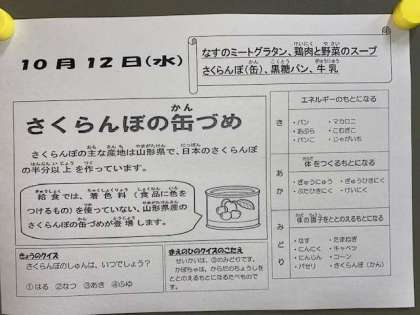 10月12日(水)
なすのミートグラタン、鶏肉と野菜のスープ
さくらんぼ(缶)、黒糖パン、牛乳
さくらんぼの缶づめ
さくらんぼの主な産地は山形県で、日本のさくらんぼ
の半分以上を作っています。
給食では、着色料(食品に色を
つけるもの)を使っていない、山形県産の
さくらんぼの缶づめが登場します。
きょうのクイズ
さくらんぼのしゅんは、いつでしょう?
①はる ②なつ ③あき ④ふゆ
まえのひのクイズのこたえ
せいかいは、③のみどりです。
かぼちゃは、からだのちょうしをと
とのえるもとになるたべもので
す。
き
エネルギーのもとになる
・パン ・マカロニ
・あぶら ・こむぎこ
・パンこ ・じゃがいも
あか
体をつくるもとになる
・ぎゅうにゅう ・ぎゅうひきにく
・ぶたひきにく ・けいにく
みどり
体の調子をととのえるもとになる
・なす ・たまねぎ
・にんにく ・キャベツ
・にんじん ・コーン
・パセリ ・さくらんぼ(かん)